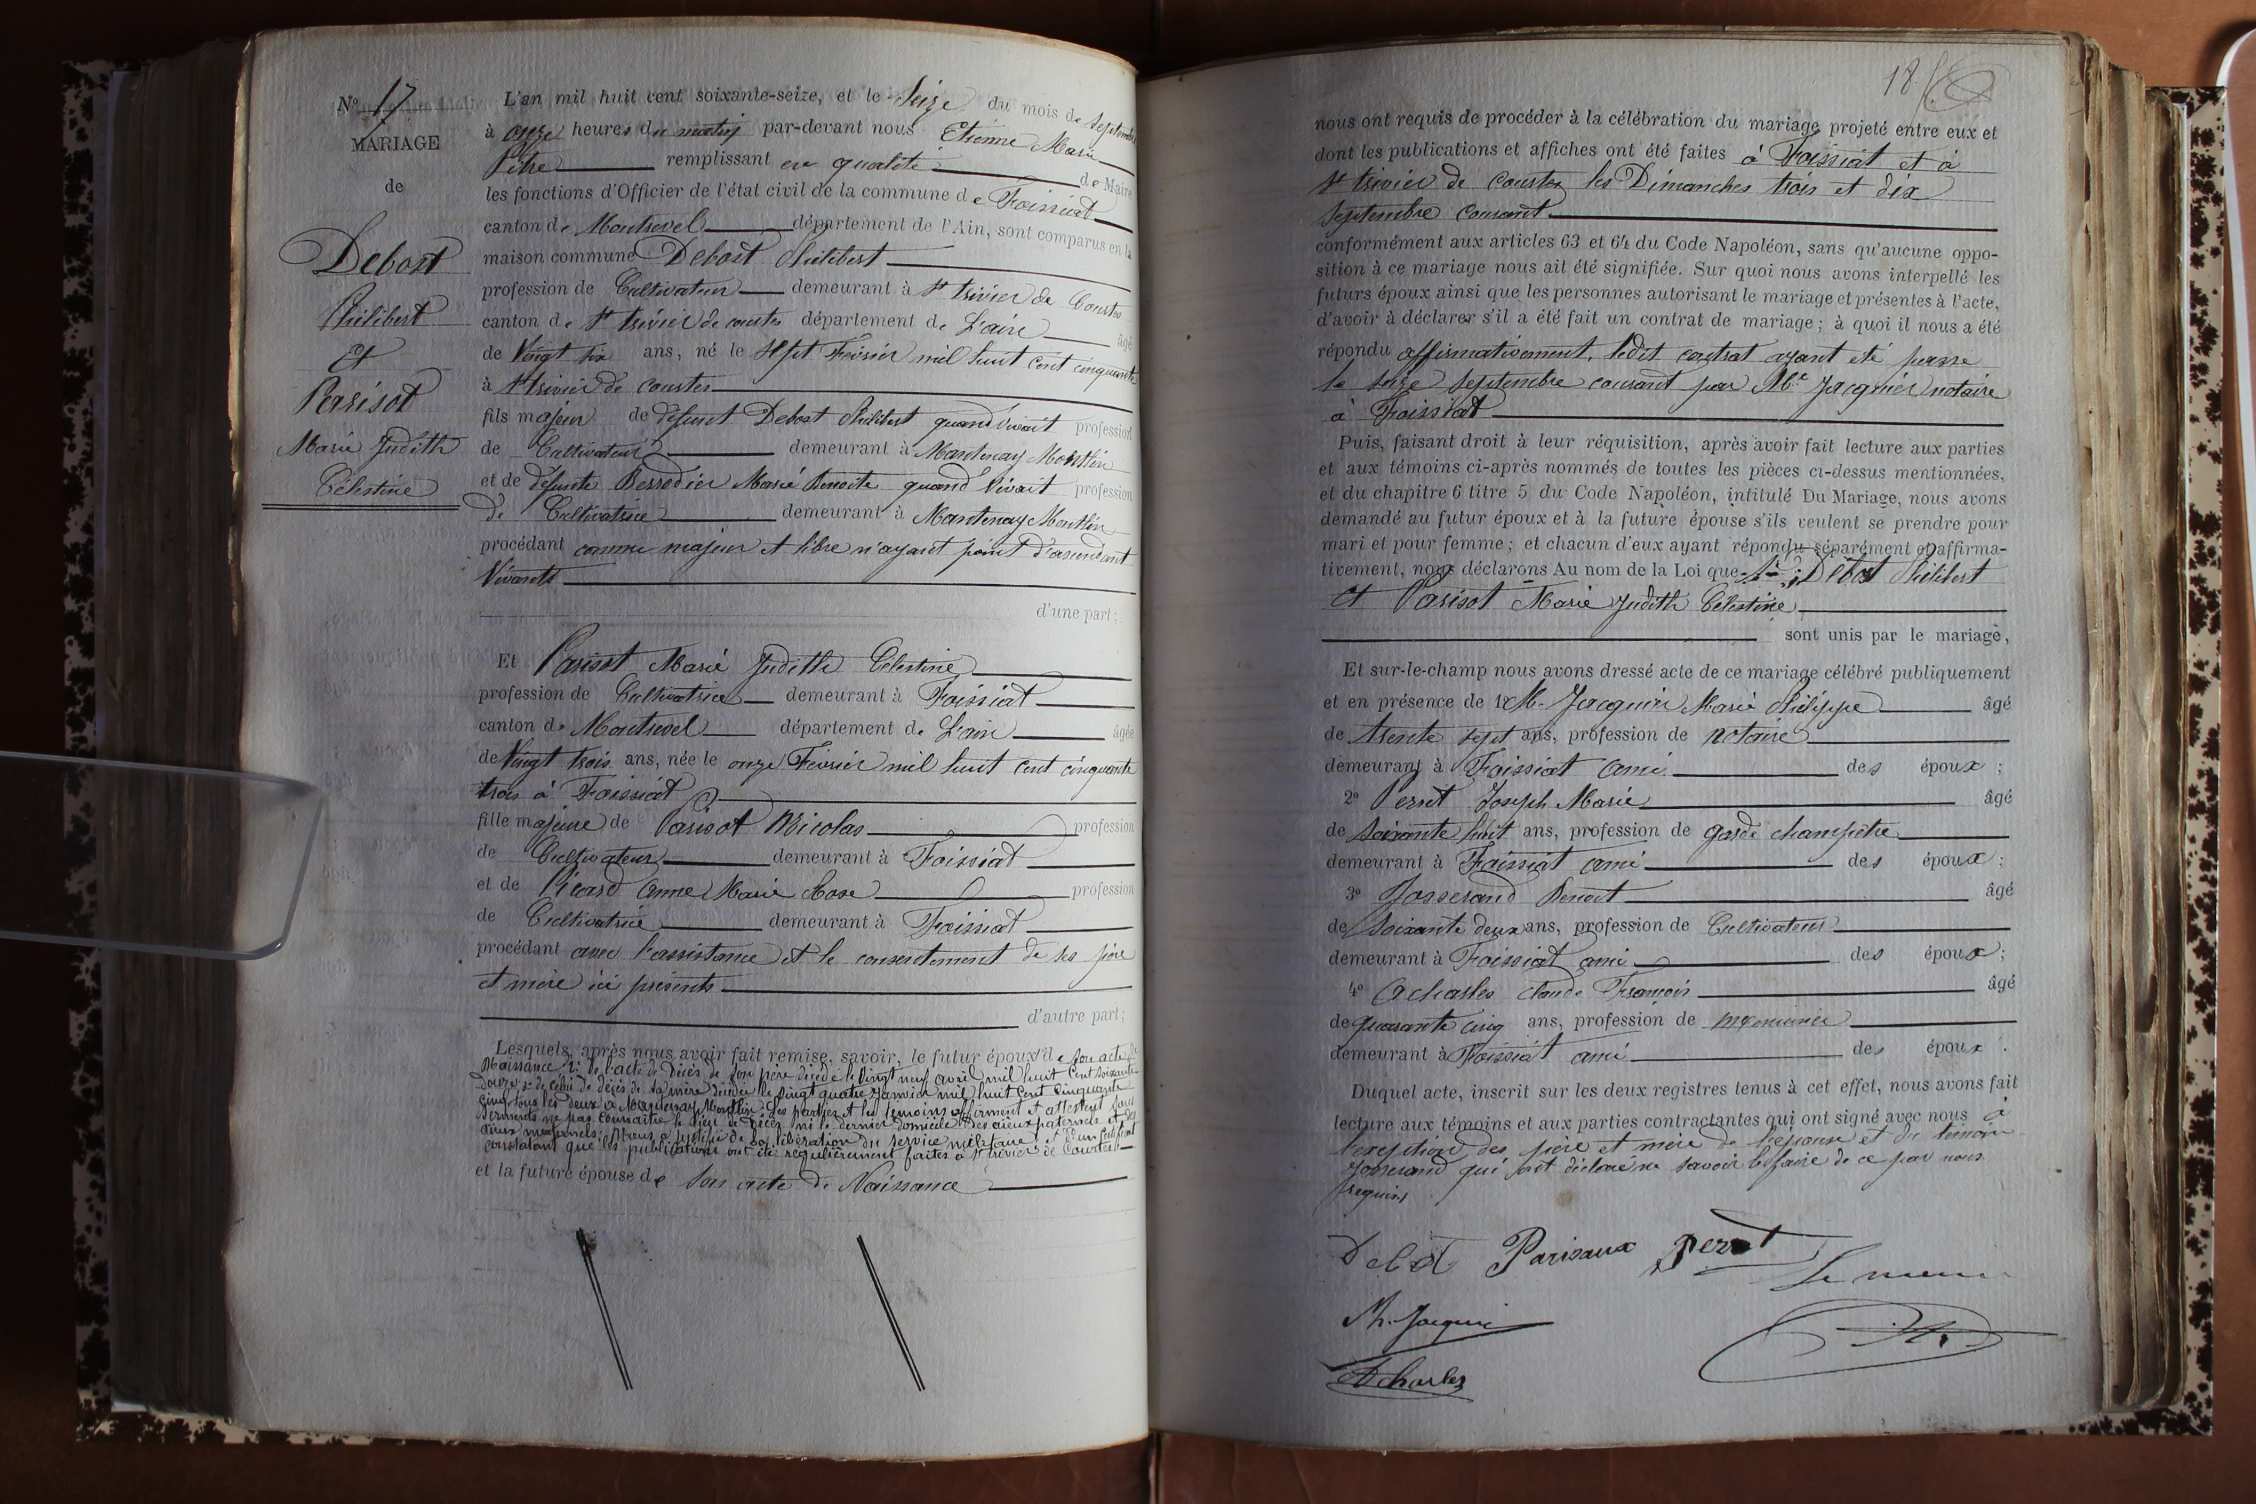 N° 17
MARIAGE
de
Debost
Philibert
Et
Parisot
Marie Judith
Célestine
L'an mil huit cent soixante-seize, et le Seize du mois de Septembre
à onze heures du matin par-devant nous Etienne Marie
Pitre remplissant en qualité de Maire
les fonctions d'Officier de l'état civil de la commune de Foissiat
canton de Montrevel département de l'Ain, sont comparus en la
maison commune Debost Philibert
profession de Cultivateur demeurant à St trivier de Courtes
canton de St trivier de courtes département de L'ain âgé
de Vingt six ans, né le Sept Février mil huit cent cinquante
à St trivier de courtes
fils majeur de défunt Debost Philibert quand vivait profession
de Cultivateur demeurant à Mantenay Montlin
et de défunte Perrodier Marie Benoite quand Vivait profession
de Cultivatrice demeurant à Mantenay Montlin
procédant comme majeur et libre n'ayant point d'ascendant
Vivants
d'une part;
Et Parisot Marie Judith Célestine
profession de Cultivatrice demeurant à Foissiat
canton de Montrevel département de L'ain âgée
de Vingt trois ans, née le onze Février mil huit cent cinquante
trois à Foissiat
fille majeure de Parisot Nicolas profession
de Cultivateur demeurant à Foissiat
et de Picard Anne Marie Rose profession
de Cultivatrice demeurant à Foissiat
procédant avec l'assistance et le consentement de ses père
et mère ici présents
d'autre part;
Lesquels, après nous avoir fait remise, savoir, le futur époux de son acte de
Naissance 2° de l'acte de Décès de son père décédé le Vingt neuf avril mil huit cent soixante
Douze, 3° de celui de décès de sa mère décédée le Vingt quatre Janvier mil huit cent cinquante
cinq tous les deux à Mantenay Montlin; Les parties et les témoins affirment et attestent sous
serments ne pas connaitre le lieu de Décès ni le dernier domicile des aieux paternels et des
aieux maternels; Nous a justifié de sa libération du service militaire et d'un Certificat
constatant que les publications ont été regulièrement faites à St trivier de Courtes
et la future épouse de Son acte de Naissance
18
nous ont requis de procéder à la célébration du mariage projeté entre eux et
dont les publications et affiches ont été faites à Foissiat et à
St trivier de Courtes les Dimanches trois et dix
Septembre courant
conformément aux articles 63 et 64 du Code Napoléon, sans qu'aucune oppo-
sition à ce mariage nous ait été signifiée. Sur quoi nous avons interpellé les
futurs époux ainsi que les personnes autorisant le mariage et présentes à l'acte,
d'avoir à déclarer s'il a été fait un contrat de mariage; à quoi il nous a été
répondu affirmativement, ledit contrat ayant eté passé
le seize septembre courant par Me Jacquier notaire
à Foissiat
Puis, faisant droit à leur réquisition, après avoir fait lecture aux parties
et aux témoins ci-après nommés de toutes les pièces ci-dessus mentionnées,
et du chapitre 6 titre 5 du Code Napoléon, intitulé Du Mariage, nous avons
demandé au futur époux et à la future épouse s'ils veulent se prendre pour
mari et pour femme; et chacun d'eux ayant répondu séparément et affirma-
tivement, nous déclarons Au nom de la Loi que Debost Philibert
et Parisot Marie Judith Célestine
sont unis par le mariage,
Et sur-le-champ nous avons dressé acte de ce mariage célébré publiquement
et en présence de 1° M. Jacquier Marie Philippe âgé
de trente sept ans, profession de notaire
demeurant à Foissiat ami des époux;
2° Perret Joseph Marie âgé
de Soixante huit ans, profession de garde champêtre
demeurant à Foissiat ami des époux;
3° Josserand Benoit âgé
de Soixante deux ans, profession de Cultivateur
demeurant à Foissiat ami des époux;
4° Acharles Claude François âgé
de quarante cinq ans, profession de menuisier
demeurant à Foissiat ami des époux.
Duquel acte, inscrit sur les deux registres tenus à cet effet, nous avons fait
lecture aux témoins et aux parties contractantes qui ont signé avec nous à
l'exeption des père et mère de l'épouse et du témoin
Josserand qui ont déclaré ne savoir le faire de ce par nous
requis
Debost Parisaux Perret
Le maire
Ph. Jacquier
Acharles